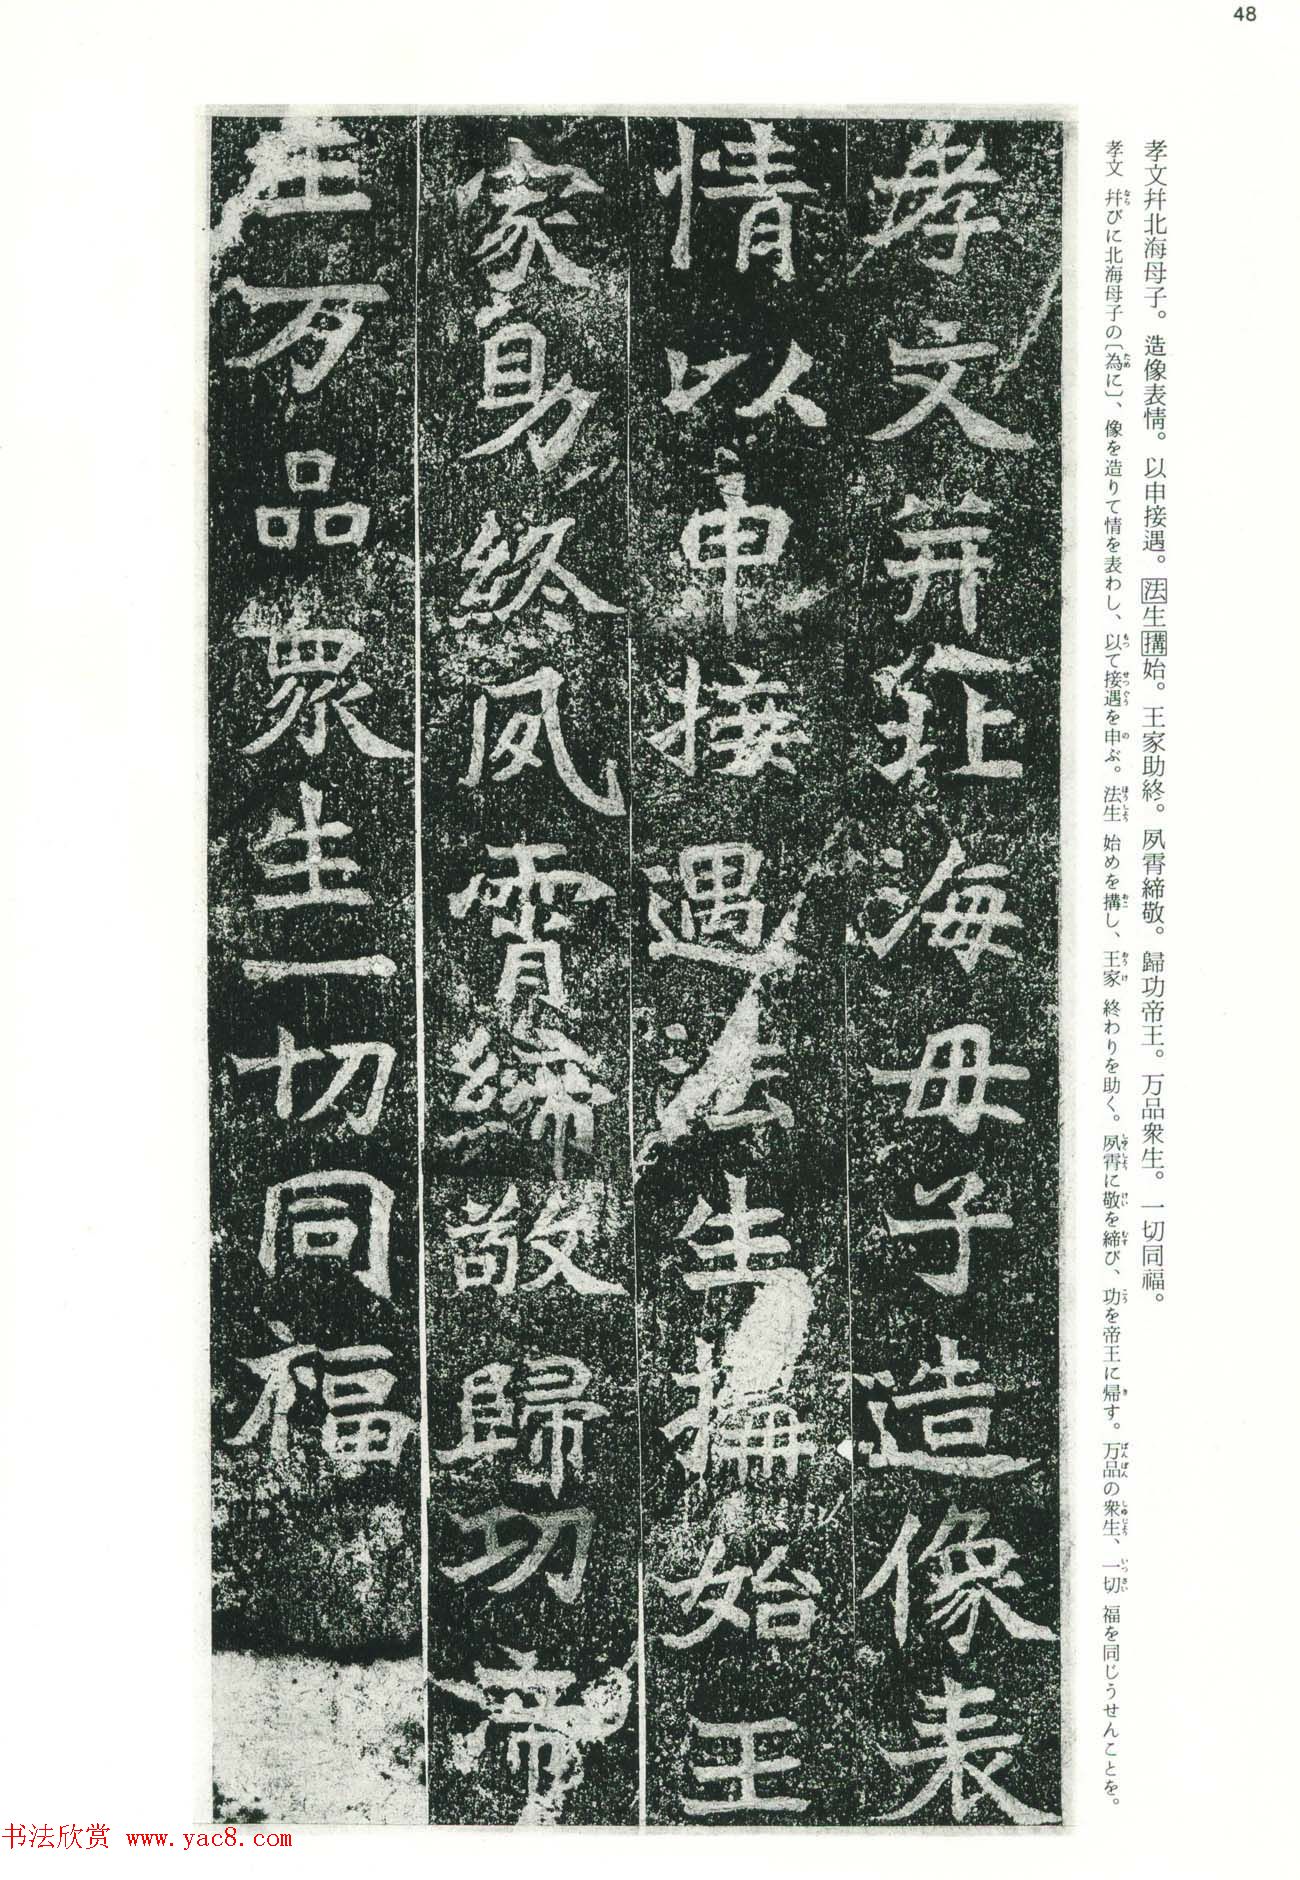 48
孝文幷北海母子。造像表情。以申接遇。法生搆始。王家助終。夙霄締敬。歸功帝王。万品衆生。一切同福。
孝文 幷びに北海母子の〔為に〕、像を造りて情を表わし、以て接遇を申ぶ。法生 始めを搆し、王家 終わりを助く。夙霄に敬を締び、功を帝王に帰す。万品の衆生、一切 福を同じうせんことを。
孝文幷北海母子造像表
情以申接遇法生搆始王
家助終夙霄締敬歸功帝
王万品衆生一切同福
书法欣赏 www.yac8.com